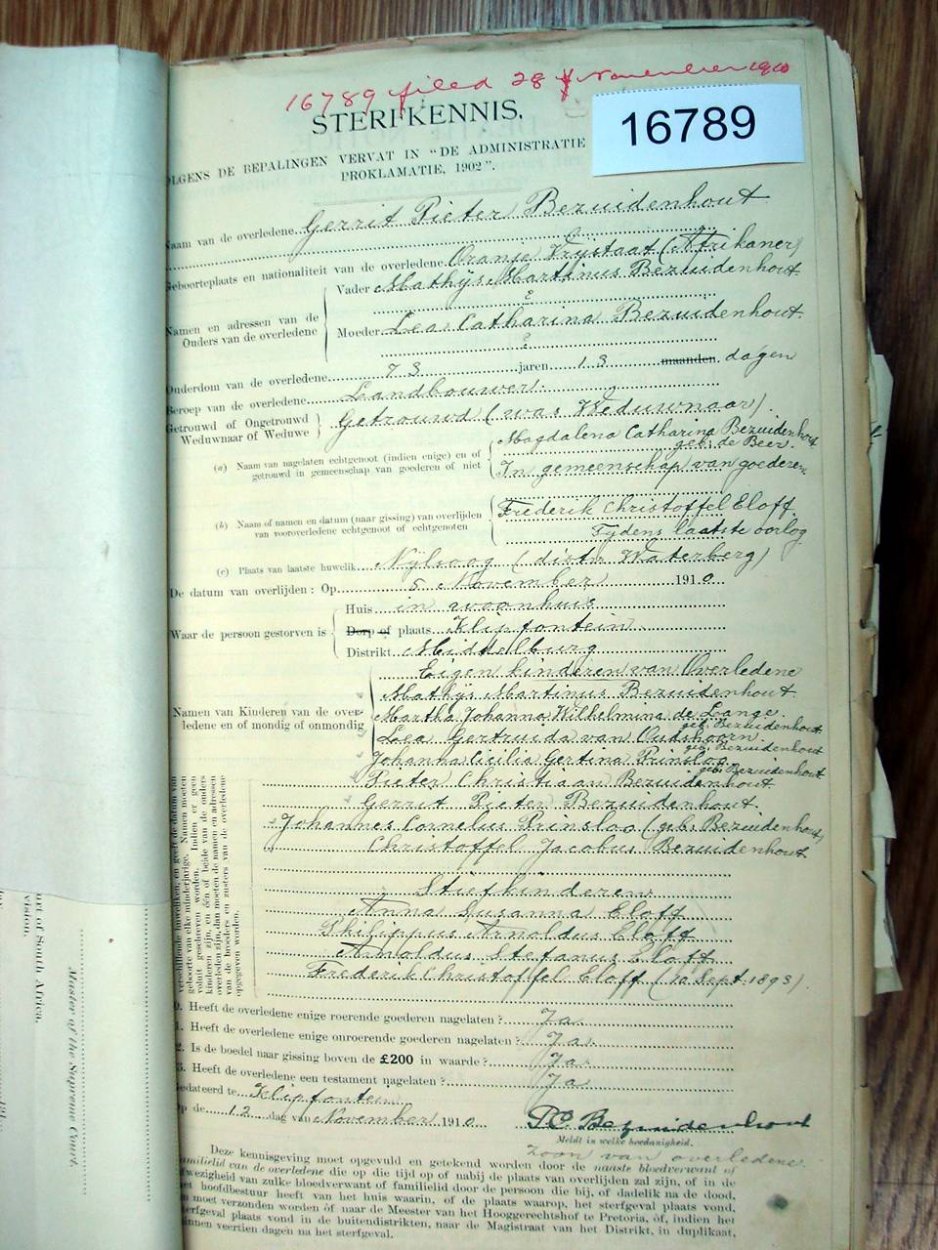 16789 filed 28 November 1910
STERFKENNIS.
16789
OLGENS DE BEPALINGEN VERVAT IN "DE ADMINISTRATIE
PROKLAMATIE, 1902".
Naam van de overledene Gerrit Pieter Bezuidenhout
Geboorteplaats en nationaliteit van de overledene Oranje Vrijstaat (Afrikaner)
Namen en adressen van de Ouders van de overledene
Vader Mathijs Martinus Bezuidenhout
?
Moeder Lea Catharina Bezuidenhout
?
Ouderdom van de overledene 73 jaren 13 maanden dagen
Beroep van de overledene Landbouwer
Getrouwd of Ongetrouwd
Weduwnaar of Weduwe
Getrouwd (was Weduwnaar)
(a) Naam van nagelaten echtgenoot (indien enige) en of
getrouwd in gemeenschap van goederen of niet
Magdalena Catharina Bezuidenhout
geb: de Beer
In gemeenschap van goederen
(b) Naam of namen en datum (naar gissing) van overlijden
van vooroverledene echtgenoot of echtgenoten
Frederik Christoffel Eloff
Tijdens laatste oorlog
(c) Plaats van laatste huwelik Nijlsoog (distr. Waterberg)
De datum van overlijden: Op 5 November 1910
Waar de persoon gestorven is
Huis in woonhuis
Dorp of plaats Klipfontein
Distrikt Middelburg
Namen van Kinderen van de over-
ledene en of mondig of onmondig
Eigen kinderen van Overledene
Mathijs Martinus Bezuidenhout
Martha Johanna Wilhelmina de Lange
geb. Bezuidenhout
Lea Gertruida van Oudshoorn
geb. Bezuidenhout
Johanna Cicilia Gertina Prinsloo
geb. Bezuidenhout
Pieter Christiaan Bezuidenhout
Gerrit Pieter Bezuidenhout
Johannes Cornelus Prinsloo (geb. Bezuidenhout)
Christoffel Jacobus Bezuidenhout
Stiefkinderen
Anna Susanna Eloff
Philippus Arnoldus Eloff
Arnoldus Stefanus Eloff
Frederik Christoffel Eloff (10 Sept: 1893)
verschillende huweliken, en geeft de datum van
geboorte van elke minderjarige. Namen moeten
voluit geschreven worden. Indien er geen
kinderen zijn, en één of beide van de ouders
overleden zijn, dan moeten de namen en adressen
van de broeders en zusters van de overledene
opgegeven worden.
0. Heeft de overledene enige roerende goederen nagelaten? Ja
1. Heeft de overledene enige onroerende goederen nagelaten? Ja
2. Is de boedel naar gissing boven de £200 in waarde? Ja
3. Heeft de overledene een testament nagelaten? Ja
Gedateerd te Klipfontein
Op de 12 dag van November 1910
PC Bezuidenhout
Meldt in welke hoedanigheid.
Zoon van overledene
Deze kennisgeving moet opgevuld en getekend worden door de naaste bloedverwant of
familielid van de overledene die op die tijd op of nabij de plaats van overlijden zal zijn, of in de
afwezigheid van zulke bloedverwant of familielid door de persoon die bij, of dadelik na de dood,
het hoofdbestuur heeft van het huis waarin, of de plaats waarop, het sterfgeval plaats vond,
en moet verzonden worden óf naar de Meester van het Hooggerechtshof te Pretoria, óf, indien het
sterfgeval plaats vond in de buitendistrikten, naar de Magistraat van het Distrikt, in duplikaat,
binnen veertien dagen na het sterfgeval.
art of South Africa,
vision.
Master of the Supreme Court.